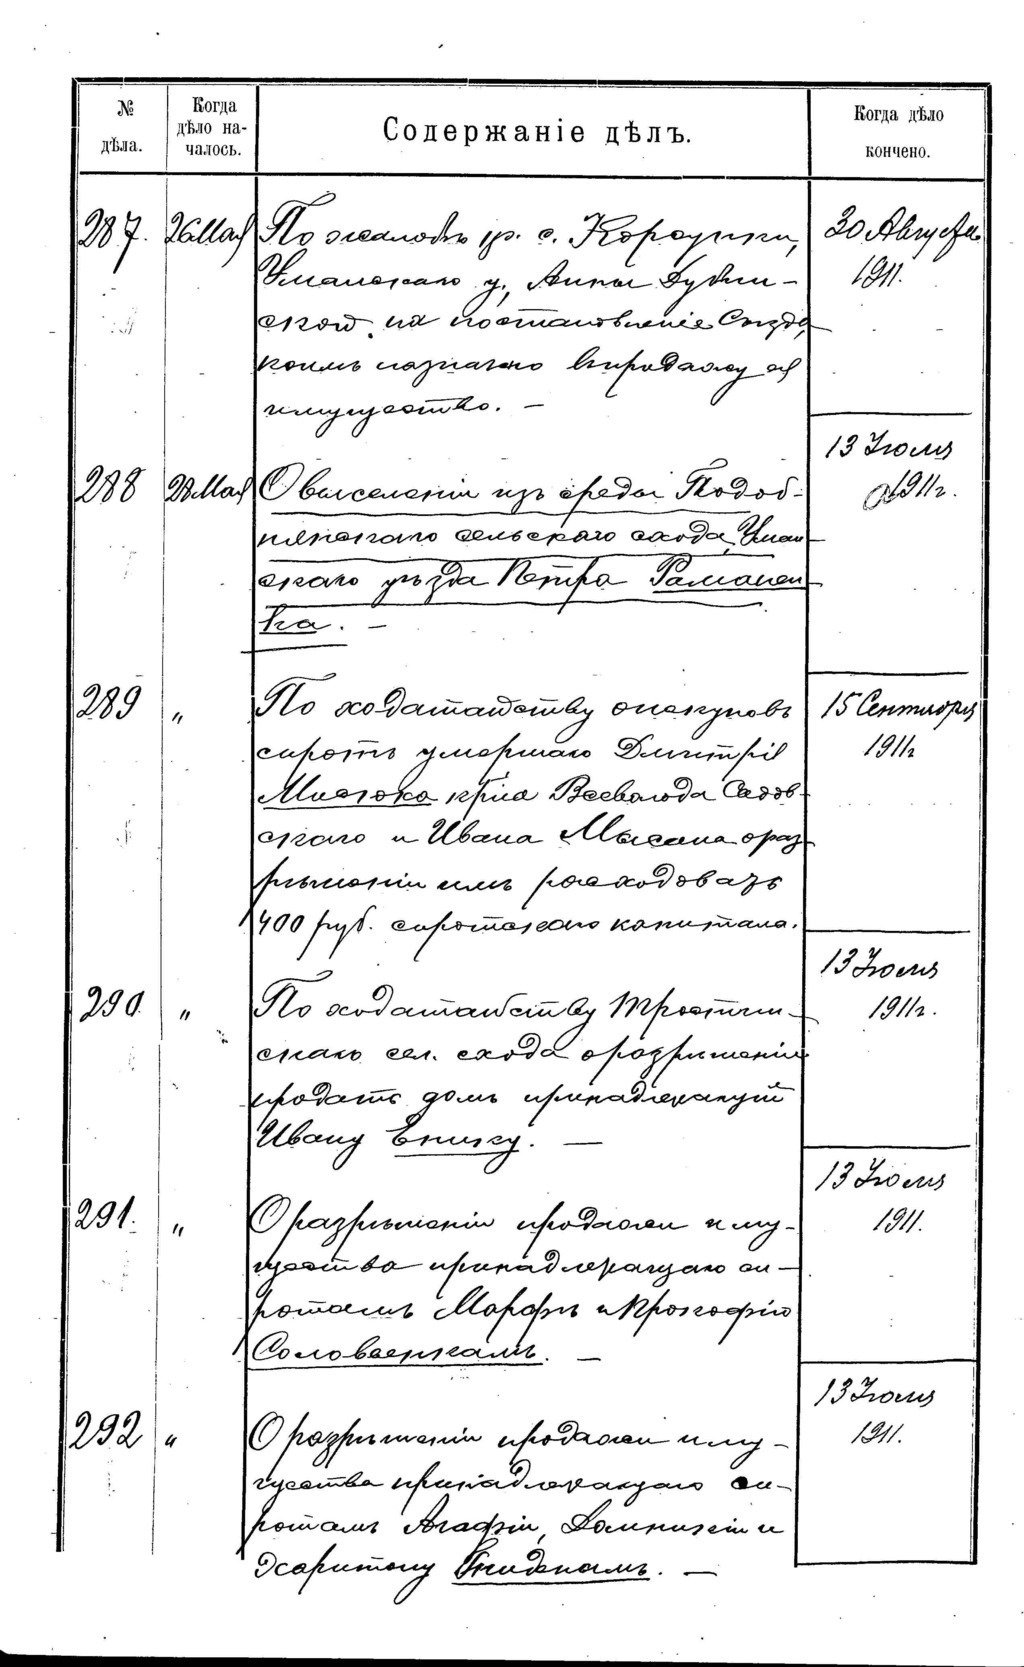 № дѣла.
Когда дѣло началось.
Содержаніе дѣлъ.
Когда дѣло кончено.
287. 26 Мая По жалобѣ кр. с. 30 Августа
Уманскаго у., Анны 1911.
ской на постановленіе Съѣзда,
коимъ назначено въ продажу ея
имущество. —
13 Іюля
288 28 Мая О выселеніи изъ среды Подоб- 1911 г.
нянскаго сельскаго схода, Уман
скаго уѣзда Петра Романен
ка. —
289 " По ходатайству опекуновъ 15 Сентября
сиротъ умершаго Дмитрія 1911 г
Мисюка кр-на Всеволода Садов-
скаго и Ивана о раз
рѣшеніи имъ расходовать
400 руб. сиротскаго капитала.
13 Іюля
290. " По ходатайству Тростин- 1911 г.
скаго сел. схода о разрѣшеніи
продать домъ принадлежащій
Ивану
13 Іюля
291. " О разрѣшеніи продажи иму- 1911.
щества принадлежащаго си-
ротамъ Марфѣ и Прокофію
Соловьенкамъ. —
13 Іюля
292 " О разрѣшеніи продажи иму- 1911.
щества принадлежащаго си-
ротамъ Агафіи, Домникіи и
Харитону